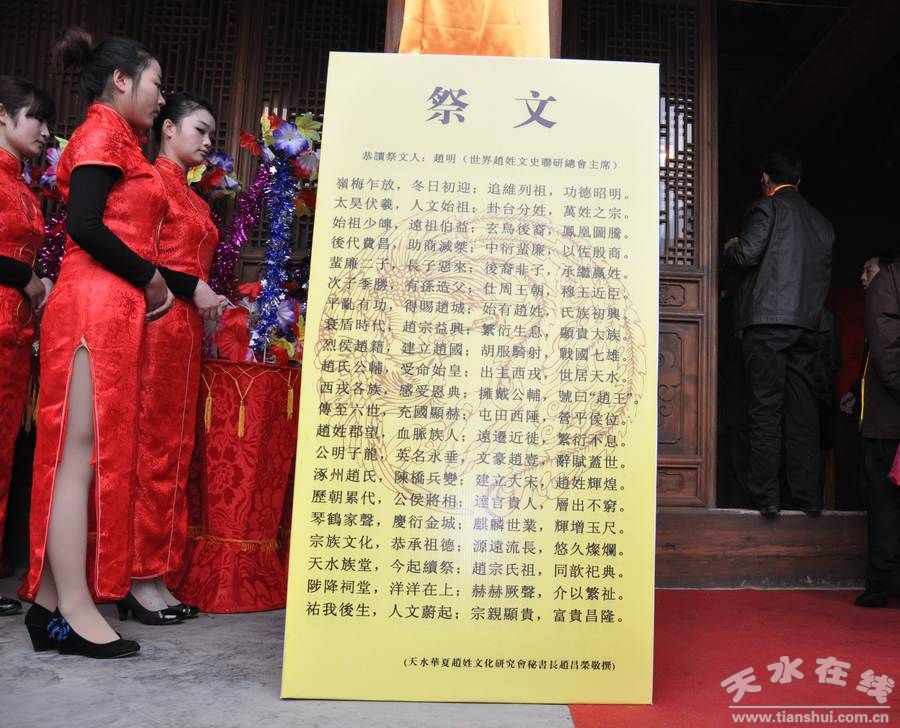 祭 文
恭讀祭文人：趙明（世界趙姓文史聯研總會主席）
嶺梅乍放，冬日初迎；追維列祖，功德昭明。
太昊伏羲，人文始祖；卦台分姓，萬姓之宗。
始祖少皞，遠祖伯益；玄鳥後裔，鳳凰圖騰。
後代費昌，助商滅桀；中衍蜚廉，以佐殷商。
蜚廉二子，長子惡來；後裔非子，承繼嬴姓。
次子季勝，有孫造父；仕周王朝，穆王近臣。
平亂有功，得賜趙城；始有趙姓，氏族初興。
衰盾時代，趙宗益興；繁衍生息，顯貴大族。
烈侯趙籍，建立趙國；胡服騎射，戰國七雄。
趙氏公輔，受命始皇；出主西戎，世居天水。
西戎各族，感受恩典；擁戴公輔，號曰“趙王”。
傳至六世，充國顯赫；屯田西陲，營平侯位。
趙姓郡望，血脈族人；遠遷近徙，繁衍不息。
公明子龍，英名永垂；文豪趙壹，辭賦蓋世。
涿州趙氏，陳橋兵變；建立大宋，趙姓輝煌。
歷朝累代，公侯將相；達官貴人，層出不窮。
琴鶴家聲，慶衍金城；麒麟世業，輝增玉尺。
宗族文化，恭承祖德；源遠流長，悠久燦爛。
天水族堂，今起續祭；趙宗氏祖，同歆祀典。
陟降祠堂，洋洋在上；赫赫厥聲，介以繁祉。
祐我後生，人文蔚起；宗親顯貴，富貴昌隆。
(天水華夏趙姓文化研究會秘書長趙昌榮敬撰)
天水在线
www.tianshui.com.cn